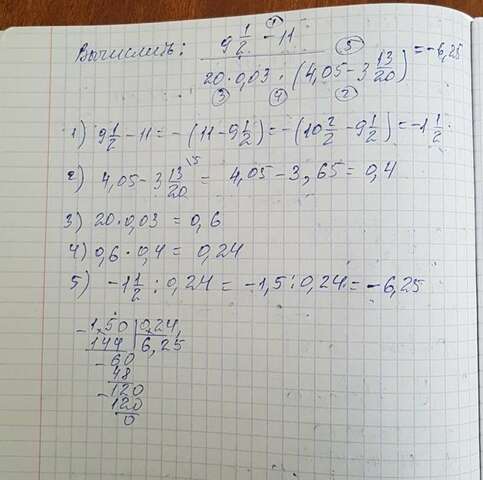 Вычислить: (9 1/2 - 11) / (20 · 0,03 · (4,05 - 3 13/20)) = -6,25
① ⑤
③ ④ ②
1) 9 1/2 - 11 = -(11 - 9 1/2) = -(10 2/2 - 9 1/2) = -1 1/2.
2) 4,05 - 3 13/20 \5 = 4,05 - 3,65 = 0,4
3) 20 · 0,03 = 0,6
4) 0,6 · 0,4 = 0,24
5) -1 1/2 : 0,24 = -1,5 : 0,24 = -6,25
-1,50 | 0,24
144 | 6,25
-60
48
-120
120
0